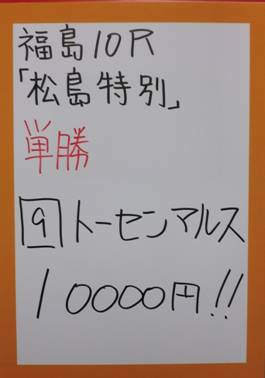 福島10R
「松島特別」
単勝
9 トーセンマルス
10000円!!